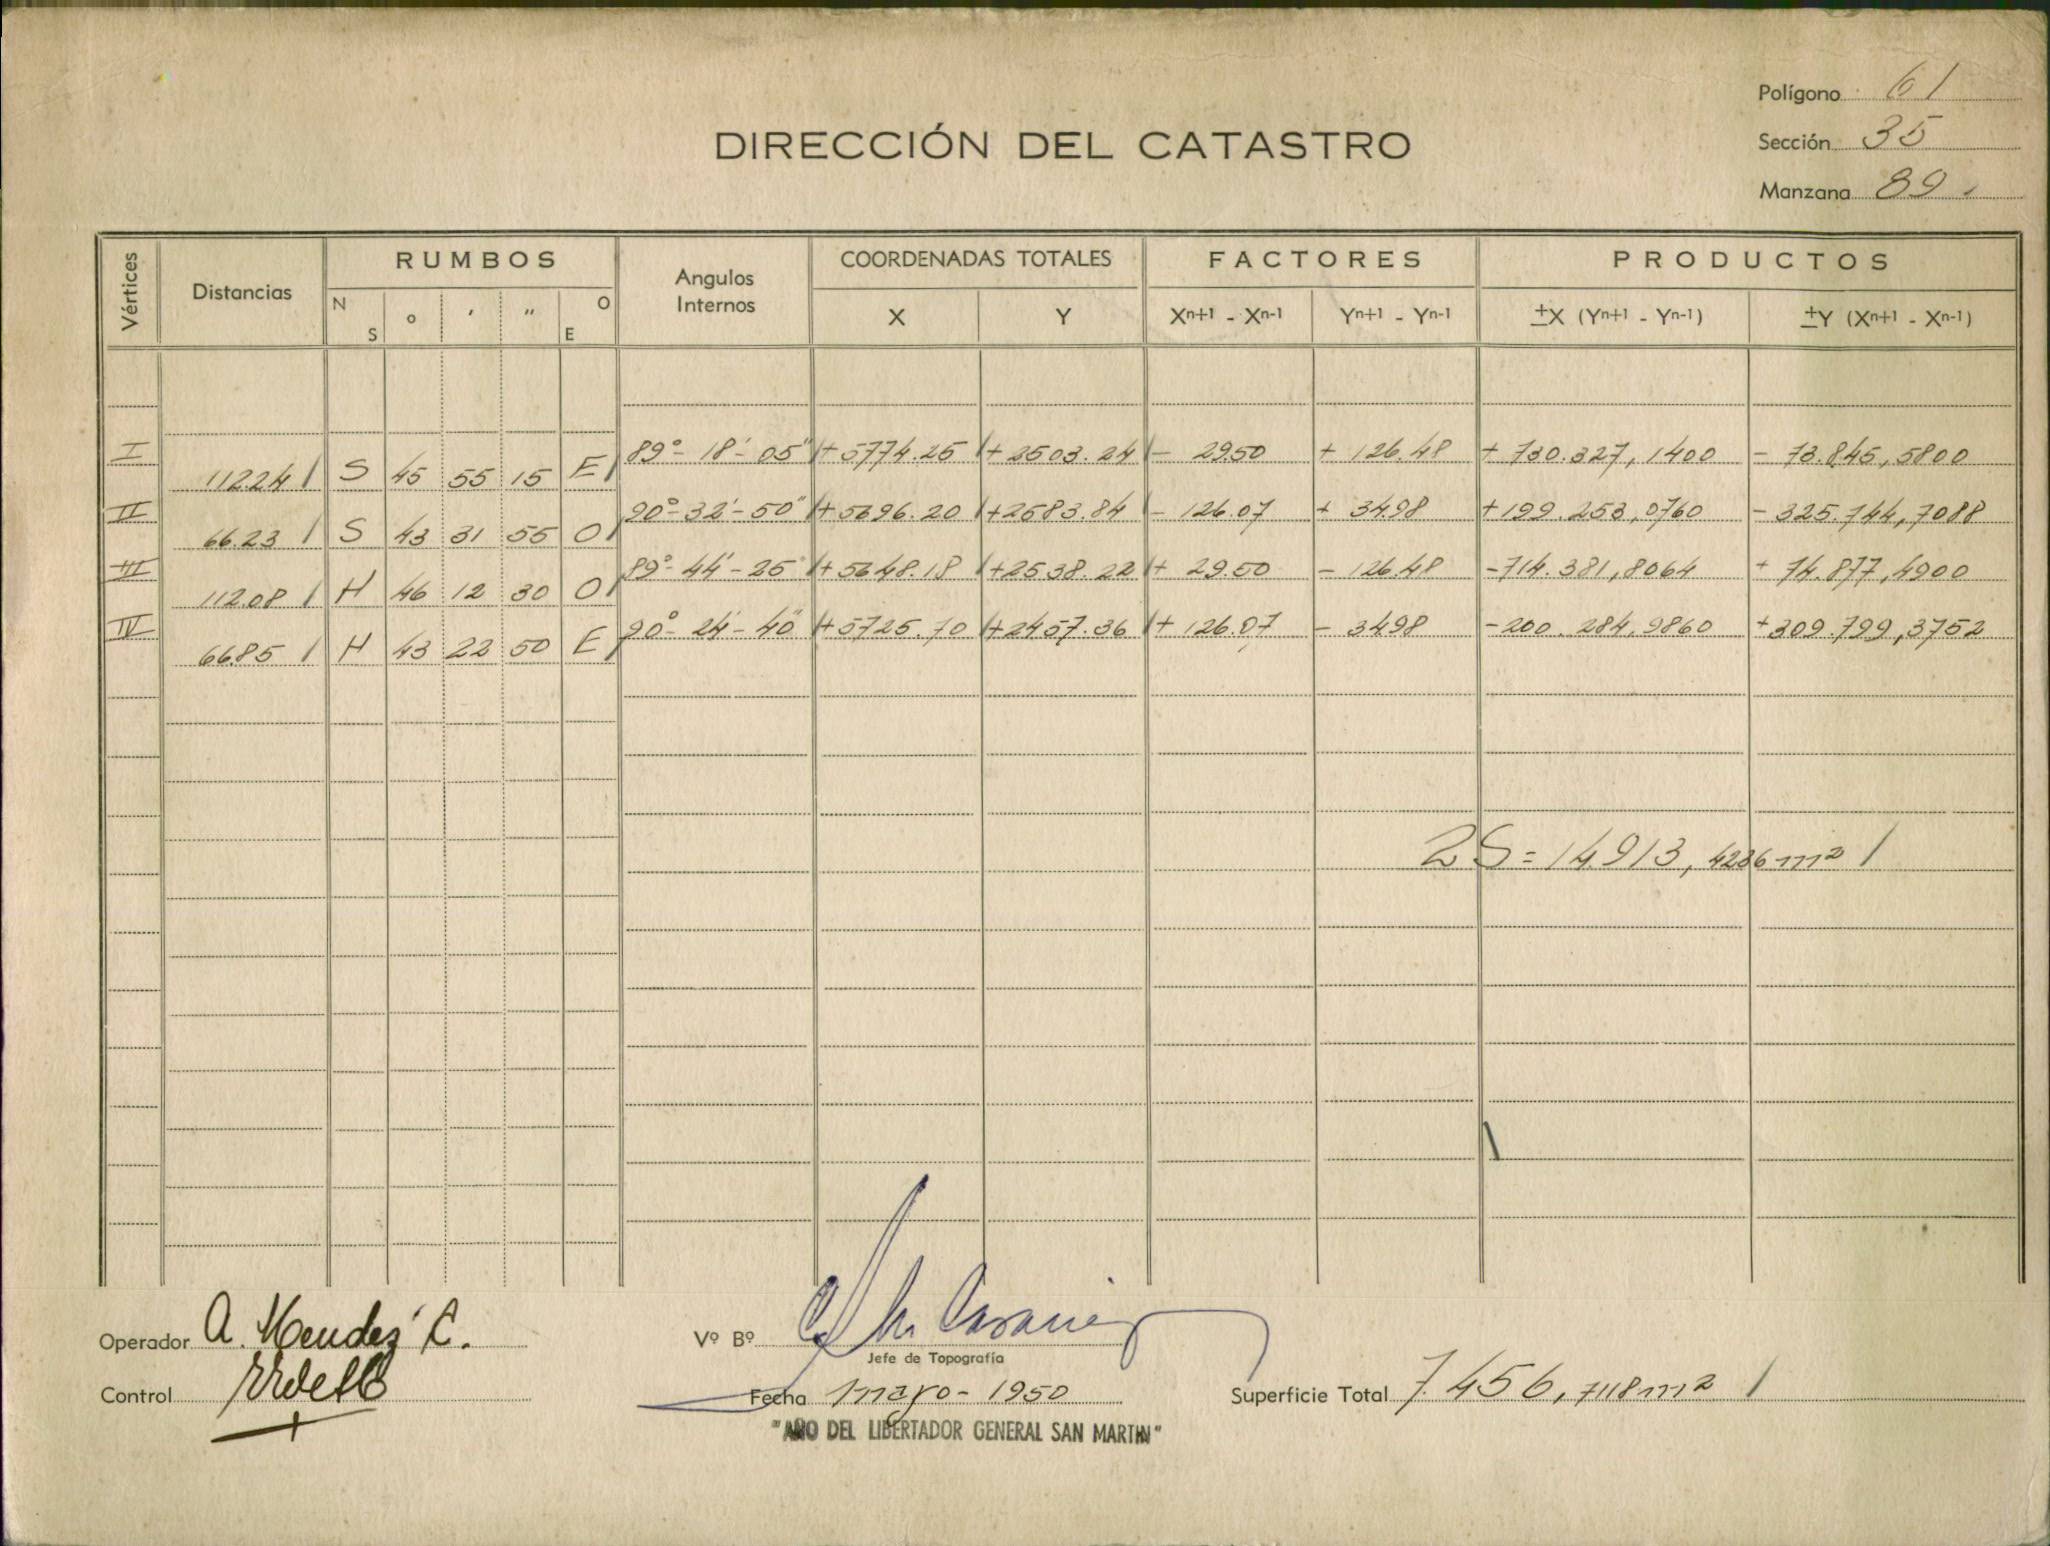 Polígono 61
DIRECCIÓN DEL CATASTRO
Sección 35
Manzana 89.
Vértices Distancias RUMBOS Angulos Internos COORDENADAS TOTALES FACTORES PRODUCTOS
N S ° ' " O E X Y Xn+1 - Xn-1 Yn+1 - Yn-1 ±X (Yn+1 - Yn-1) ±Y (Xn+1 - Xn-1)
I 89°-18'-05" +5774.25 +2503.24 - 29.50 + 126.48 + 730.327,1400 - 73.845,5800
112.24 S 45 55 15 E
II 90°-32'-50" +5696.20 +2583.84 - 126.07 + 34.98 +199.253,0760 - 325.744,7088
66.23 S 43 31 55 O
III 89°-44'-25" +5648.18 +2538.22 + 29.50 - 126.48 -714.381,8064 + 74.877,4900
112.08 N 46 12 30 O
IV 90°-24'-40" +5725.70 +2457.36 + 126.07 - 34.98 -200.284,9860 +309.799,3752
66.85 N 43 22 50 E
2S = 14.913,4236 m2
Operador A. Mendez C.
Vº Bº
Jefe de Topografía
Control
Fecha mayo - 1950
Superficie Total 7.456,7118 m2
"AÑO DEL LIBERTADOR GENERAL SAN MARTIN"